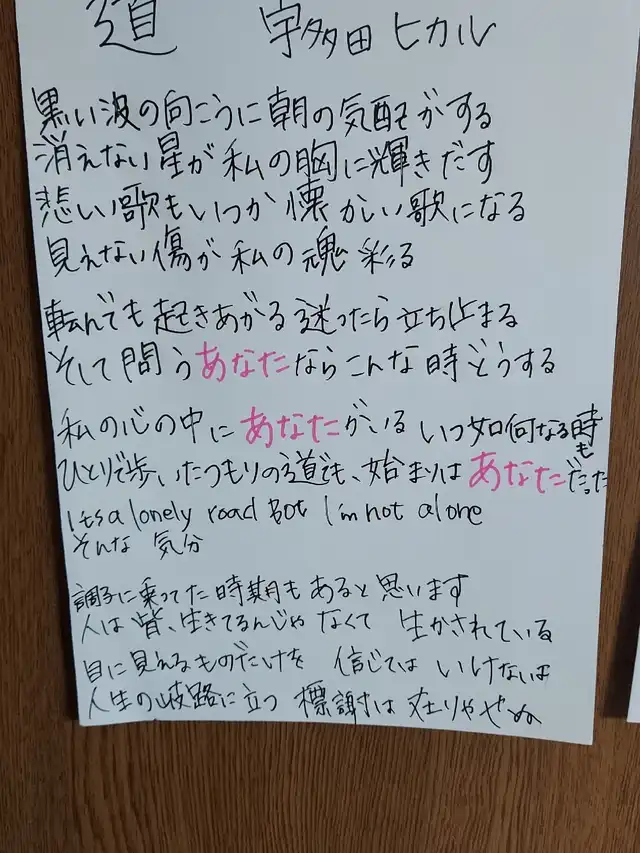 道 宇多田ヒカル
黒い波の向こうに朝の気配がする
消えない星が私の胸に輝きだす
悲しい歌もいつか懐かしい歌になる
見えない傷が私の魂彩る
転んでも起きあがる迷ったら立ち止まる
そして問うあなたならこんな時どうする
私の心の中にあなたがいる いつ如何なる時も
ひとりで歩いたつもりの道でも、始まりはあなただった
Its a lonely road Bot I'm not alone
そんな 気分
調子に乗ってた時期もあると思います
人は皆、生きてるんじゃなくて 生かされている
目に見えるものだけを 信じては いけないよ
人生の岐路に立つ 標謝は 在りゃせぬ